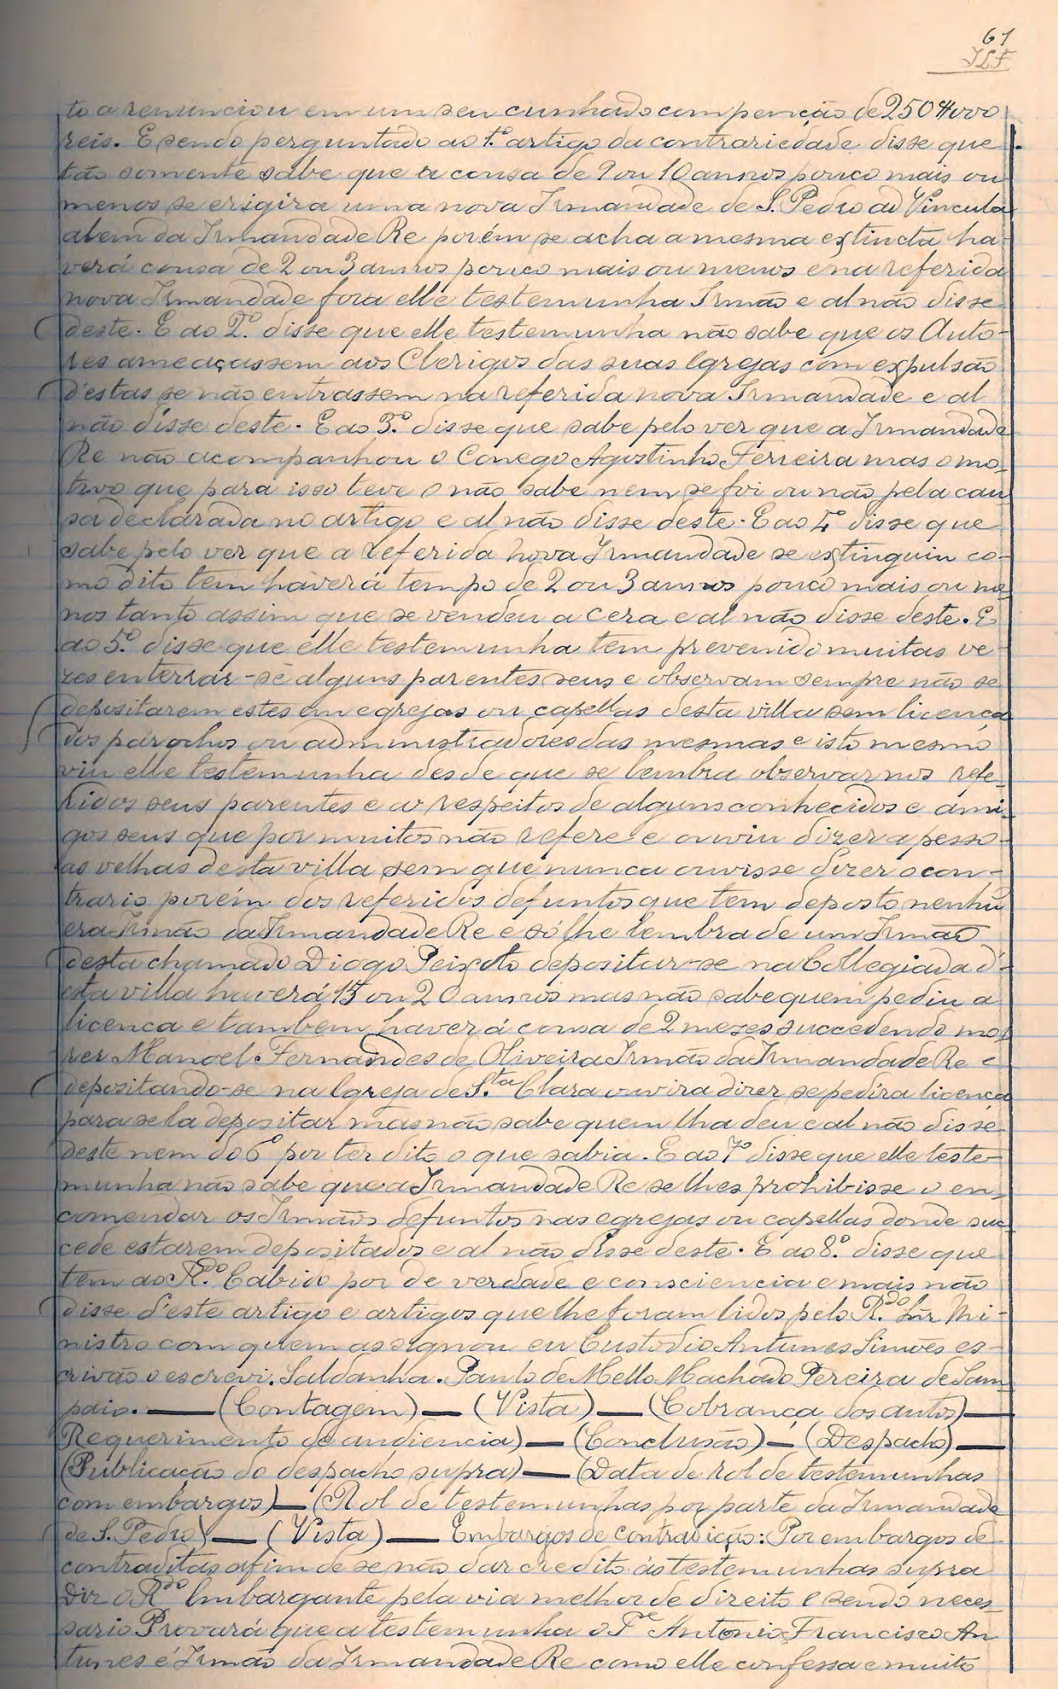 61
JLF
to a renunciou em um seu cunhado com penção de 250$000
reis. E sendo perguntado ao 1.º artigo da contrariedade disse que
tão somente sabe que a cousa de 9 ou 10 annos pouco mais ou
menos se erigira uma nova Irmandade de S. Pedro ad Vincula
alem da Irmandade Re porém se acha a mesma extincta ha-
verá cousa de 2 ou 3 annos pouco mais ou menos e na referida
nova Irmandade fora elle testemunha Irmão e al não disse
deste. E ao 2.º disse que elle testemunha não sabe que os Auto-
res ameaçassem aos Clerigos das suas Igrejas com expulsão
d'estas se não entrassem na referida nova Irmandade e al
não disse deste. E ao 3.º disse que sabe pelo ver que a Irmandade
Re não acompanhou o Conego Agostinho Ferreira mas o mo-
tivo que para isso teve o não sabe nem se foi ou não pela cau
sa declarada no artigo e al não disse deste. E ao 4.º disse que
sabe pelo ver que a referida nova Irmandade se extinguiu co-
mo dito tem haverá tempo de 2 ou 3 annos pouco mais ou me
nos tanto assim que se vendeu a cera e al não disse deste. E
ao 5.º disse que elle testemunha tem prevenido muitas ve-
zes enterrar-se alguns parentes seus e observam sempre não se
depositarem estes em egrejas ou capellas desta villa sem licença
dos parochos ou administradores das mesmas e isto mesmo
viu elle testemunha desde que se lembra observar nos refe-
ridos seus parentes e ao respeitos de alguns conhecidos e ami-
gos seus que por muitos não refere e ouviu dizer a pesso-
as velhas desta villa sem que nunca ouvisse dizer o con-
trario porém dos referidos defuntos que tem deposto nenhũ
era Irmão da Irmandade Re e só lhe lembra de um Irmão
desta chamado Diogo Peixoto depositar-se na Collegiada d'-
esta villa haverá 15 ou 20 annos mas não sabe quem pediu a
licenca e tambem haverá cousa de 2 mezes succedendo mor
rer Manoel Fernandes de Oliveira Irmão da Irmandade Re e
depositando-se na Igreja de S.ta Clara ouvira dizer se pedira licença
para se la depositar mas não sabe quem lha deu e al não disse
deste nem do 6º por ter dito o que sabia. E ao 7º disse que elle teste-
munha não sabe que a Irmandade Re se lhes prohibisse o en-
comendar os Irmãos defuntos nas egrejas ou capellas donde suc
cede estarem depositados e al não disse deste. E ao 8.º disse que
tem ao R.do Cabido por de verdade e consciencia e mais não
disse d'este artigo e artigos que lhe foram lidos pelo R.do Snr Mi-
nistro com quem assignou eu Custodio Antunes Simões es-
crivão o escrevi. Saldanha. Paulo de Mello Machado Pereira de Sam
paio. — (Contagem) — (Vista) — (Cobrança dos autos) —
Requerimento de audiencia) — (Conclusão) — (Despacho) —
(Publicação do despacho supra) — (Data de rol de testemunhas
com embargos) — (Rol de testemunhas por parte da Irmandade
de S. Pedro) — (Vista) — Embargos de contradição: Por embargos de
contraditas afim de se não dar credito ás testemunhas supra
Diz o R.do Embargante pela via melhor de direito e sendo neces
sario Provará que a testemunha o P.e Antonio Francisco An
tunes é Irmão da Irmandade Re como elle confessa e muito